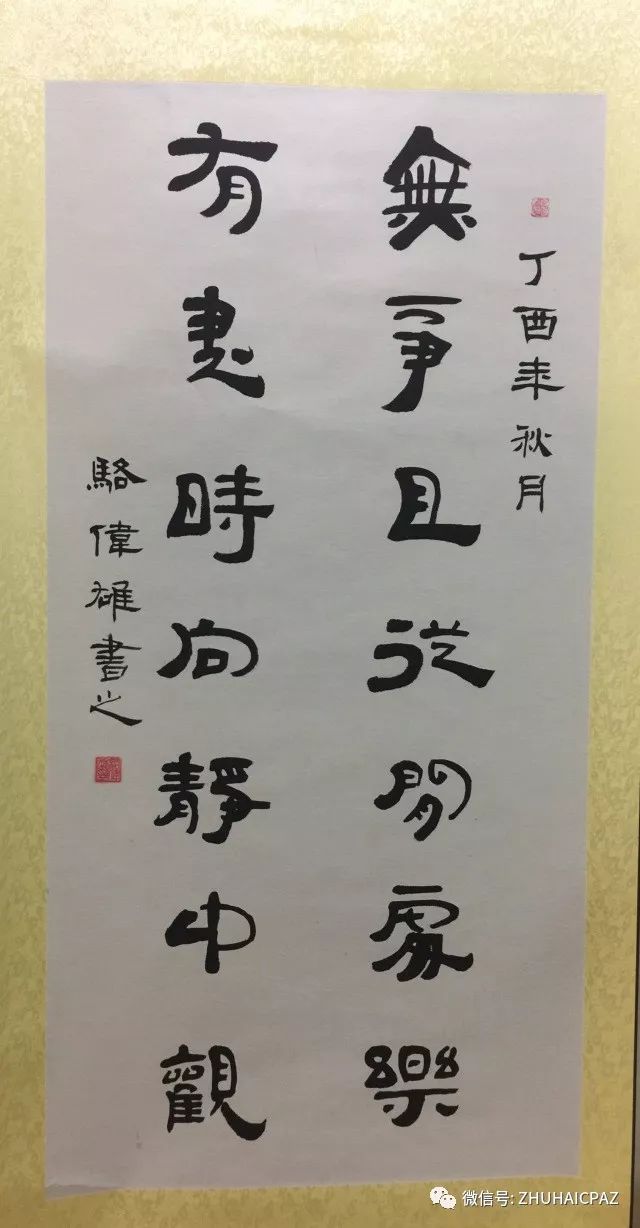 丁酉年秋月
無事且從閒處樂
有書時向靜中觀
駱偉雄書之
微信号: ZHUHAICPAZ